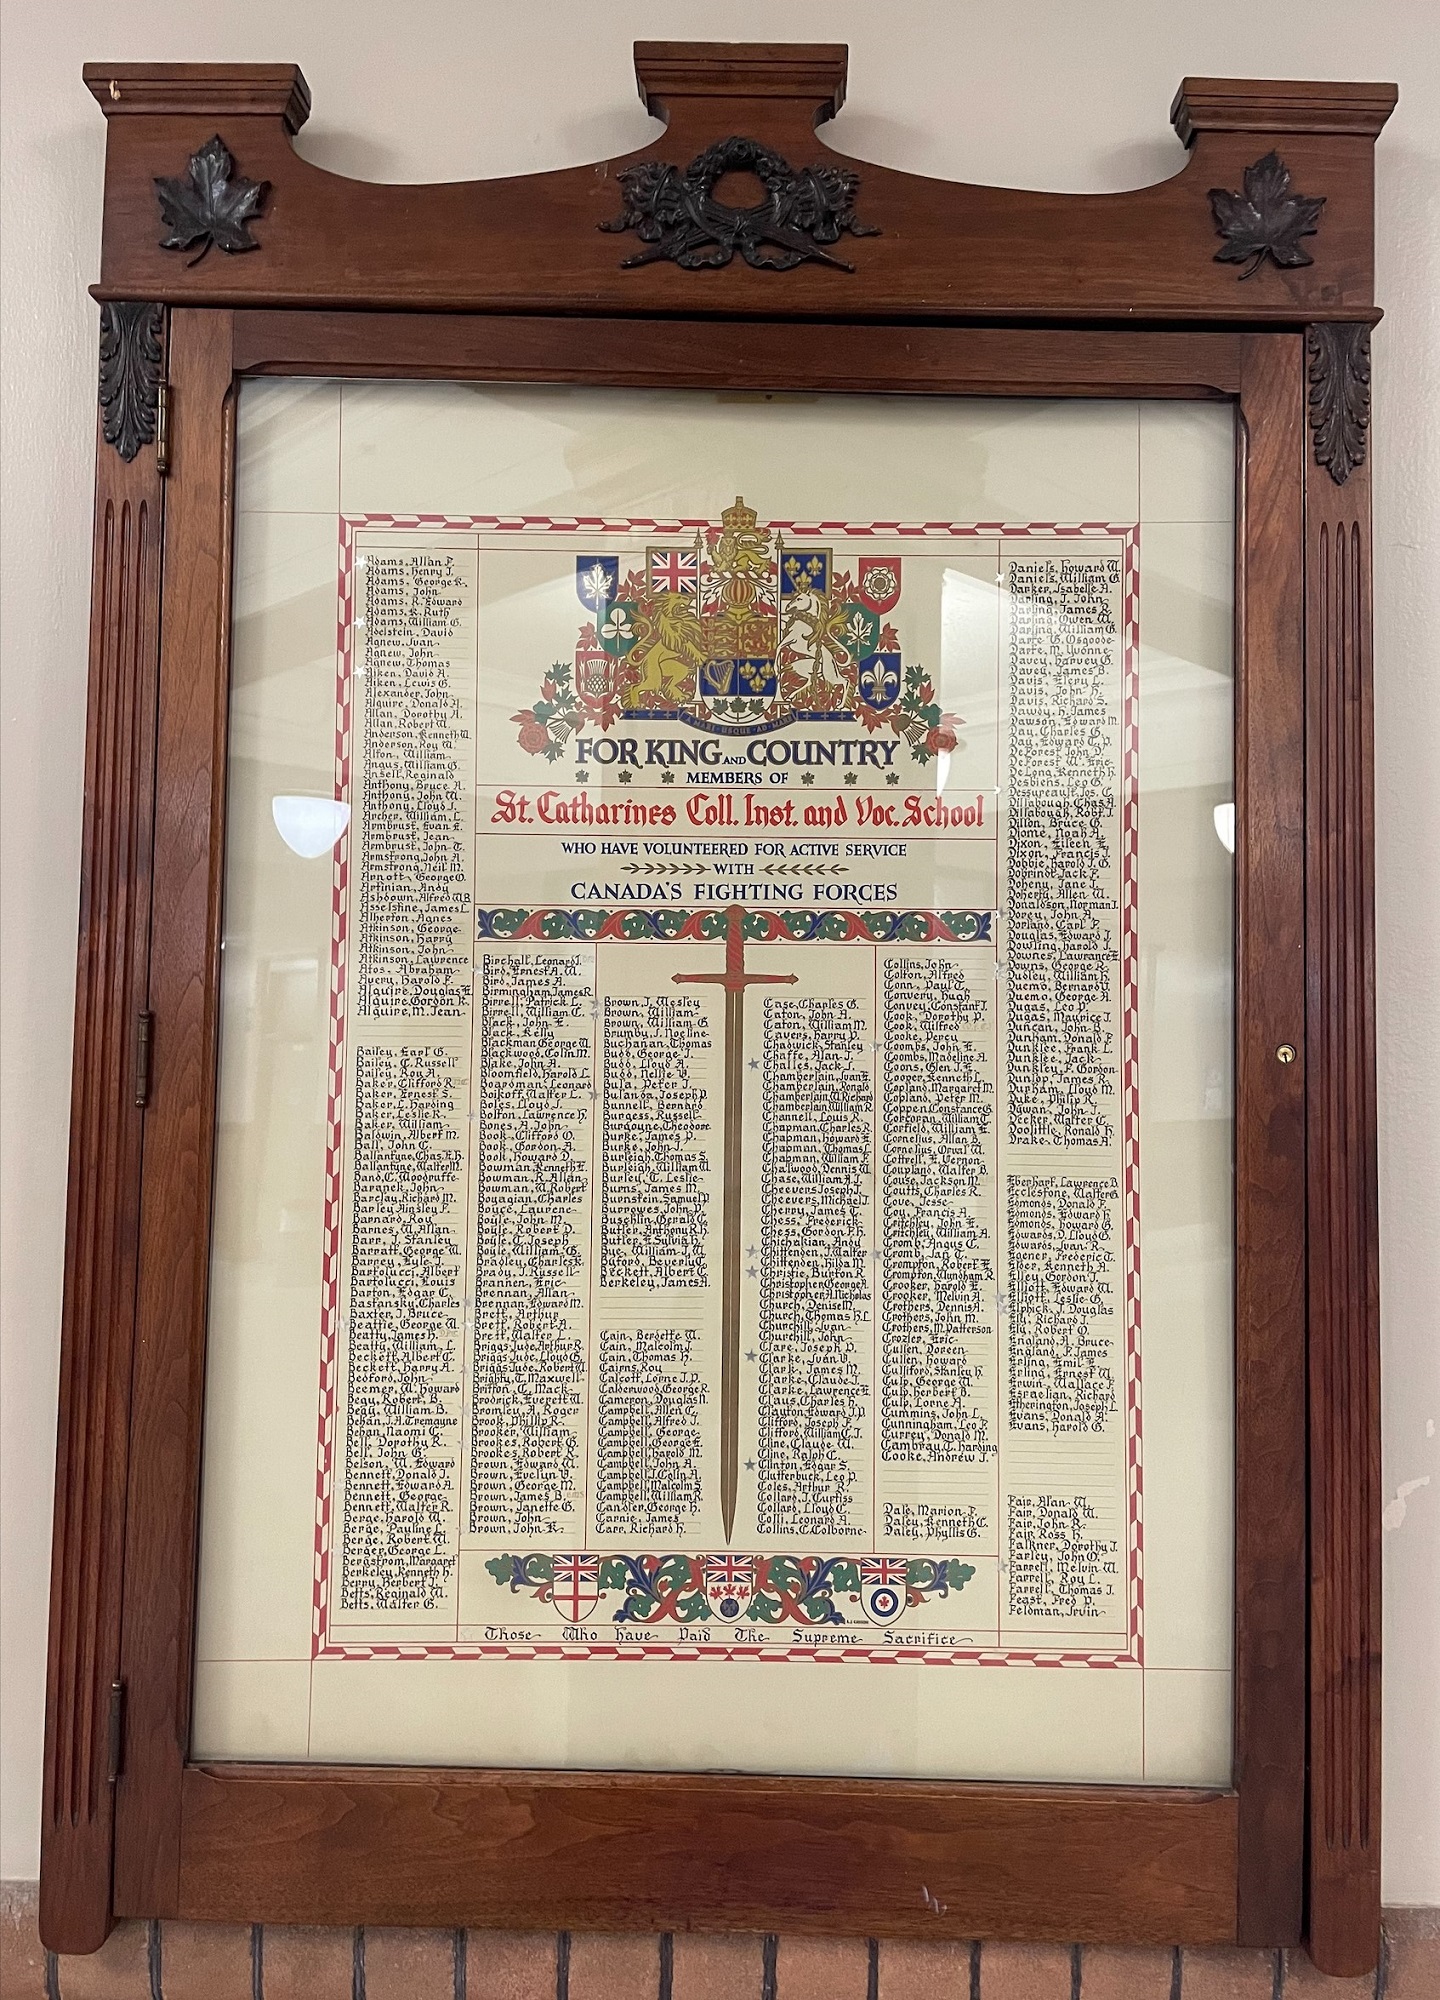 A MARI USQUE AD MARE
FOR KING AND COUNTRY
MEMBERS OF
St. Catharines Coll. Inst. and Voc. School
WHO HAVE VOLUNTEERED FOR ACTIVE SERVICE
WITH
CANADA'S FIGHTING FORCES
Adams, Allan F.
Adams, Henry J.
Adams, George R.
Adams, John
Adams, R. Edward
Adams, R. Ruth
Adams, William G.
Adelstein, David
Agnew, Ivan
Agnew, John
Agnew, Thomas
Aiken, David A.
Aiken, Lewis G.
Alexander, John
Alguire, Donald A.
Allan, Dorothy A.
Allan, Robert W.
Anderson, Kenneth W.
Anderson, Roy W.
Alton, William
Angus, William G.
Ansell, Reginald
Anthony, Bruce A.
Anthony, John W.
Anthony, Lloyd J.
Archer, William, L.
Armbrust, Evan E.
Armbrust, Jean
Armbrust, John T.
Armstrong, John A.
Armstrong, Neil M.
Arnott, George G.
Artinian, Andy
Ashdown, Alfred W.B.
Asselstine, James L.
Atherton, Agnes
Atkinson, George
Atkinson, Harry
Atkinson, John
Atkinson, Lawrence
Atos, Abraham
Avery, Harold F.
Alguire, Douglas E.
Alguire, Gordon R.
Alguire, M. Jean
Bailey, Earl G.
Bailey, C. Russell
Bailey, Roy A.
Baker, Clifford R.
Baker, Ernest S.
Baker, L. Harding
Baker, Leslie R.
Baker, William
Baldwin, Albert M.
Ball, John C.
Ballantyne, Chas. E.H.
Ballantyne, Walter M.
Band, C. Woodruffe
Baranek, John
Barclay, Richard M.
Barley, Ainsley F.
Barnard, Roy
Barnes, W. Allan
Barr, J. Stanley
Barratt, George W.
Barney, Lyle J.
Bartolucci, Albert
Bartolucci, Louis
Barton, Edgar C.
Bastansky, Charles
Baxter, J. Bruce
Beattie, George W.
Beatty, James H.
Beatty, William, L.
Beckett, Albert C.
Beckett, Harry A.
Bedford, John
Beemer, W. Howard
Begy, Robert, B.
Begy, William B.
Behan, J.A. Tremayne
Behan, Naomi C.
Bell, Dorothy R.
Bell, John G.
Belson, W. Edward
Bennett, Donald J.
Bennett, Edward A.
Bennett, George
Bennett, Walter R.
Berge, Harold W.
Berge, Pauline L.
Berge, Robert W.
Berger, George L.
Bergstrom, Margaret
Berkeley, Kenneth H.
Berry, Herbert J.
Betts, Reginald W.
Betts, Walter G.
Birchall, Leonard J.
Bird, Ernest A. W.
Bird, James A.
Birmingham, James R.
Birrell, Patrick L.
Birrell, William C.
Black, John E.
Black, Kelly
Blackman, George W.
Blackwood, Colin M.
Blake, John A.
Bloomfield, Harold L.
Boardman, Leonard
Boikoff, Walter L.
Boles, Lloyd J.
Bolton, Lawrence H.
Bones, A. John
Book, Clifford O.
Book, Gordon A.
Book, Howard D.
Bowman, Kenneth E.
Bowman, R. Allan
Bowman, W. Robert
Boyagian, Charles
Boyce, Laurence
Boyle, John M.
Boyle, Robert D.
Boyle, T. Joseph
Boyle, William G.
Bradley, Charles R.
Brady, J. Russell
Brannen, Eric
Brennan, Allan
Brennan, Edward M.
Brett, Arthur
Brett, Robert A.
Brett, Walter L.
Briggs Jude, Arthur R.
Briggs Jude, Lloyd G.
Briggs Jude, Robert W.
Brighty, T. Maxwell
Britton, C. Mack
Brodrick, Everett W.
Bromley, A. Roger
Brook, Phillip R.
Brooker, William
Brookes, Robert G.
Brookes, Robert R.
Brown, Edward W.
Brown, Evelyn B.
Brown, George M.
Brown, James B.
Brown, Janette G.
Brown, John
Brown, John K.
Brown, J. Wesley
Brown, William
Brown, William G.
Brumby, J. Noeline
Buchanan, Thomas
Budd, George J.
Budd, Lloyd A.
Budd, Nellie V.
Bula, Peter J.
Bulanda, Joseph P.
Bunnell, Bernard
Burgess, Russell
Burgoyne, Theodore
Burke, James P.
Burke, John J.
Burleigh, Thomas S.
Burleigh, William W.
Burley, T. Leslie
Burns, James M.
Burnstein, Samuel P.
Burrowes, John P.
Buschlin, Gerald C.
Butler, Anthony R.H.
Butler, E. Sylvia H.
Bye, William J. W.
Byford, Beverly C.
Beckett, Albert C.
Berkeley, James A.
Cain, Berdette W.
Cain, Malcolm J.
Cain, Thomas H.
Cairns, Roy
Calcott, Lorne J.P.
Calderwood, George R.
Cameron, Douglas N.
Campbell, Allen C.
Campbell, Alfred J.
Campbell, George
Campbell, George E.
Campbell, Harold M.
Campbell, John A.
Campbell, J. Colin A.
Campbell, Malcolm S.
Campbell, William R.
Candler, George H.
Carnie, James
Carr, Richard H.
Case, Charles G.
Caton, John A.
Caton, William M.
Cavers, Harry P.
Chadwick, Stanley
Chaffe, Alan J.
Challes, Jack L.
Chamberlain, Ivan E.
Chamberlain, Ronald
Chamberlain, W. Richard
Chamberlain, William R.
Channell, Louis R.
Chapman, Charles R.
Chapman, Howard E.
Chapman, Thomas L.
Chapman, William F.
Chatwood, Dennis W.
Chase, William A.J.
Cheevers, Joseph J.
Cheevers, Michael J.
Cherry, James C.
Chess, Frederick
Chess, Gordon F.H.
Chichakian, Andy
Chittenden, J. Walter
Chittenden, Hilda M.
Christie, Burton R.
Christopher, George A.
Christopher, A. Nicholas
Church, Denise M.
Church, Thomas H.L.
Churchill, Ivan
Churchill, John
Clare, Joseph D.
Clarke, Ivan D.
Clark, James M.
Clarke, Claude J.
Clarke, Lawrence E.
Claus, Charles H.
Clayton, Edward J.P.
Clifford, Joseph F.
Clifford, William C.J.
Cline, Claude W.
Cline, Ralph C.
Clinton, Edgar S.
Clutterbuck, Leo P.
Coles, Arthur R.
Collard, J. Curtiss
Collard, Lloyd C.
Colli, Leonard A.
Collins, C. Colborne
Collins, John
Colton, Alfred
Conn, Paul T.
Convery, Hugh
Convey, Constant J.
Cook, Dorothy P.
Cook, Wilfred
Cooke, Percy
Coombs, John E.
Coombs, Madeline A.
Coons, Glen J.E.
Cooper, Kenneth L.
Copland, Margaret M.
Copland, Peter M.
Coppen, Constance G.
Corcoran, William T.
Corfield, William E.
Cornelius, Allan B.
Cornelius, Orval W.
Cottrell, E. Vernon
Coupland, Walter B.
Couse, Jackson M.
Coutts, Charles R.
Cove, Jesse
Coy, Francis A.
Critchley, John E.
Critchley, William A.
Cromb, Angus C.
Cromb, Ian T.
Crompton, Robert E.
Crompton, Wyndham R.
Crooker, Harold E.
Crooker, Melvin A.
Crothers, Dennis A.
Crothers, John M.
Crothers, M. Patterson
Crozier, Eric
Cullen, Doreen
Cullen, Howard
Culliford, Stanley H.
Culp, George W.
Culp, Herbert B.
Culp, Lorne A.
Cummins, John L.
Cunningham, Leo F.
Currey, Donald M.
Cambray, T. Harding
Cooke, Andrew J.
Dale, Marion F.
Daley, Kenneth C.
Daley, Phyllis G.
Daniels, Howard W.
Daniels, William G.
Darker, Isabelle A.
Darling, J. John
Darling, James R.
Darling, Owen W.
Darling, William G.
Darte, G. Osgoode
Darte, M. Yvonne
Davey, Harvey G.
Davey, James B.
Davis, Elery L.
Davis, John H.
Davis, Richard S.
Dawdy, H. James
Dawson, Edward M.
Day, Charles G.
Day, Edward T.P.
DeForest, John D.
DeForest, W. Eric
DeLong, Kenneth H.
Desbiens, Leo G.
Dessureault, Jos. C.
Dillabough, Chas. A.
Dillabough, Robt. J.
Dillon, Bruce G.
Diome, Noah A.
Dixon, Eileen E.
Dixon, Francis J.
Dobbie, Harold J. G.
Dobrindt, Jack F.
Doheny, Jane J.
Doherty, Allen W.
Donaldson, Norman J.
Dorey, John A.
Dorland, Carl F.
Douglas, Edward J.
Dowling, Harold J.
Downes, Lawrence E.
Downs, George R.
Dudley, William H.
Duemo, Bernard V.
Duemo, George A.
Dugas, Leo P.
Dugas, Maurice J.
Duncan, John B.
Dunham, Donald F.
Dunklee, Frank L.
Dunklee, Jack
Dunkley, F. Gordon
Dunlop, James R.
Durham, Lloyd M.
Duke, Philip R.
Dgwan, John J.
Decker, Walter C.
Doolittle, Ronald H.
Drake, Thomas A.
Eberhart, Lawrence B.
Ecclestone, Walter G.
Edmonds, Donald F.
Edmonds, Howard G.
Edwards, D. Lloyd G.
Edwards, Ivan R.
Egener, Frederic T.
Elder, Kenneth A.
Elley, Gordon J.
Elliott, Edward W.
Elliott, Leslie G.
Elphick, J. Douglas
Ely, Richard J.
Ely, Robert O.
England, A. Bruce
England, F. James
Erling, Emil E.
Erling, Ernest W.
Erwin, Wallace F.
Esraelian, Richard
Etherington, Joseph L.
Evans, Donald A.
Evans, Harold G.
Fair, Alan W.
Fair, Donald W.
Fair, John R.
Fair, Ross H.
Falkner, Dorothy J.
Farley, John O.
Farrell, Melvin W.
Farrell, Roy L.
Farrell, Thomas J.
Feast, Fred P.
Feldman, Irvin
Those Who have Paid The Supreme Sacrifice